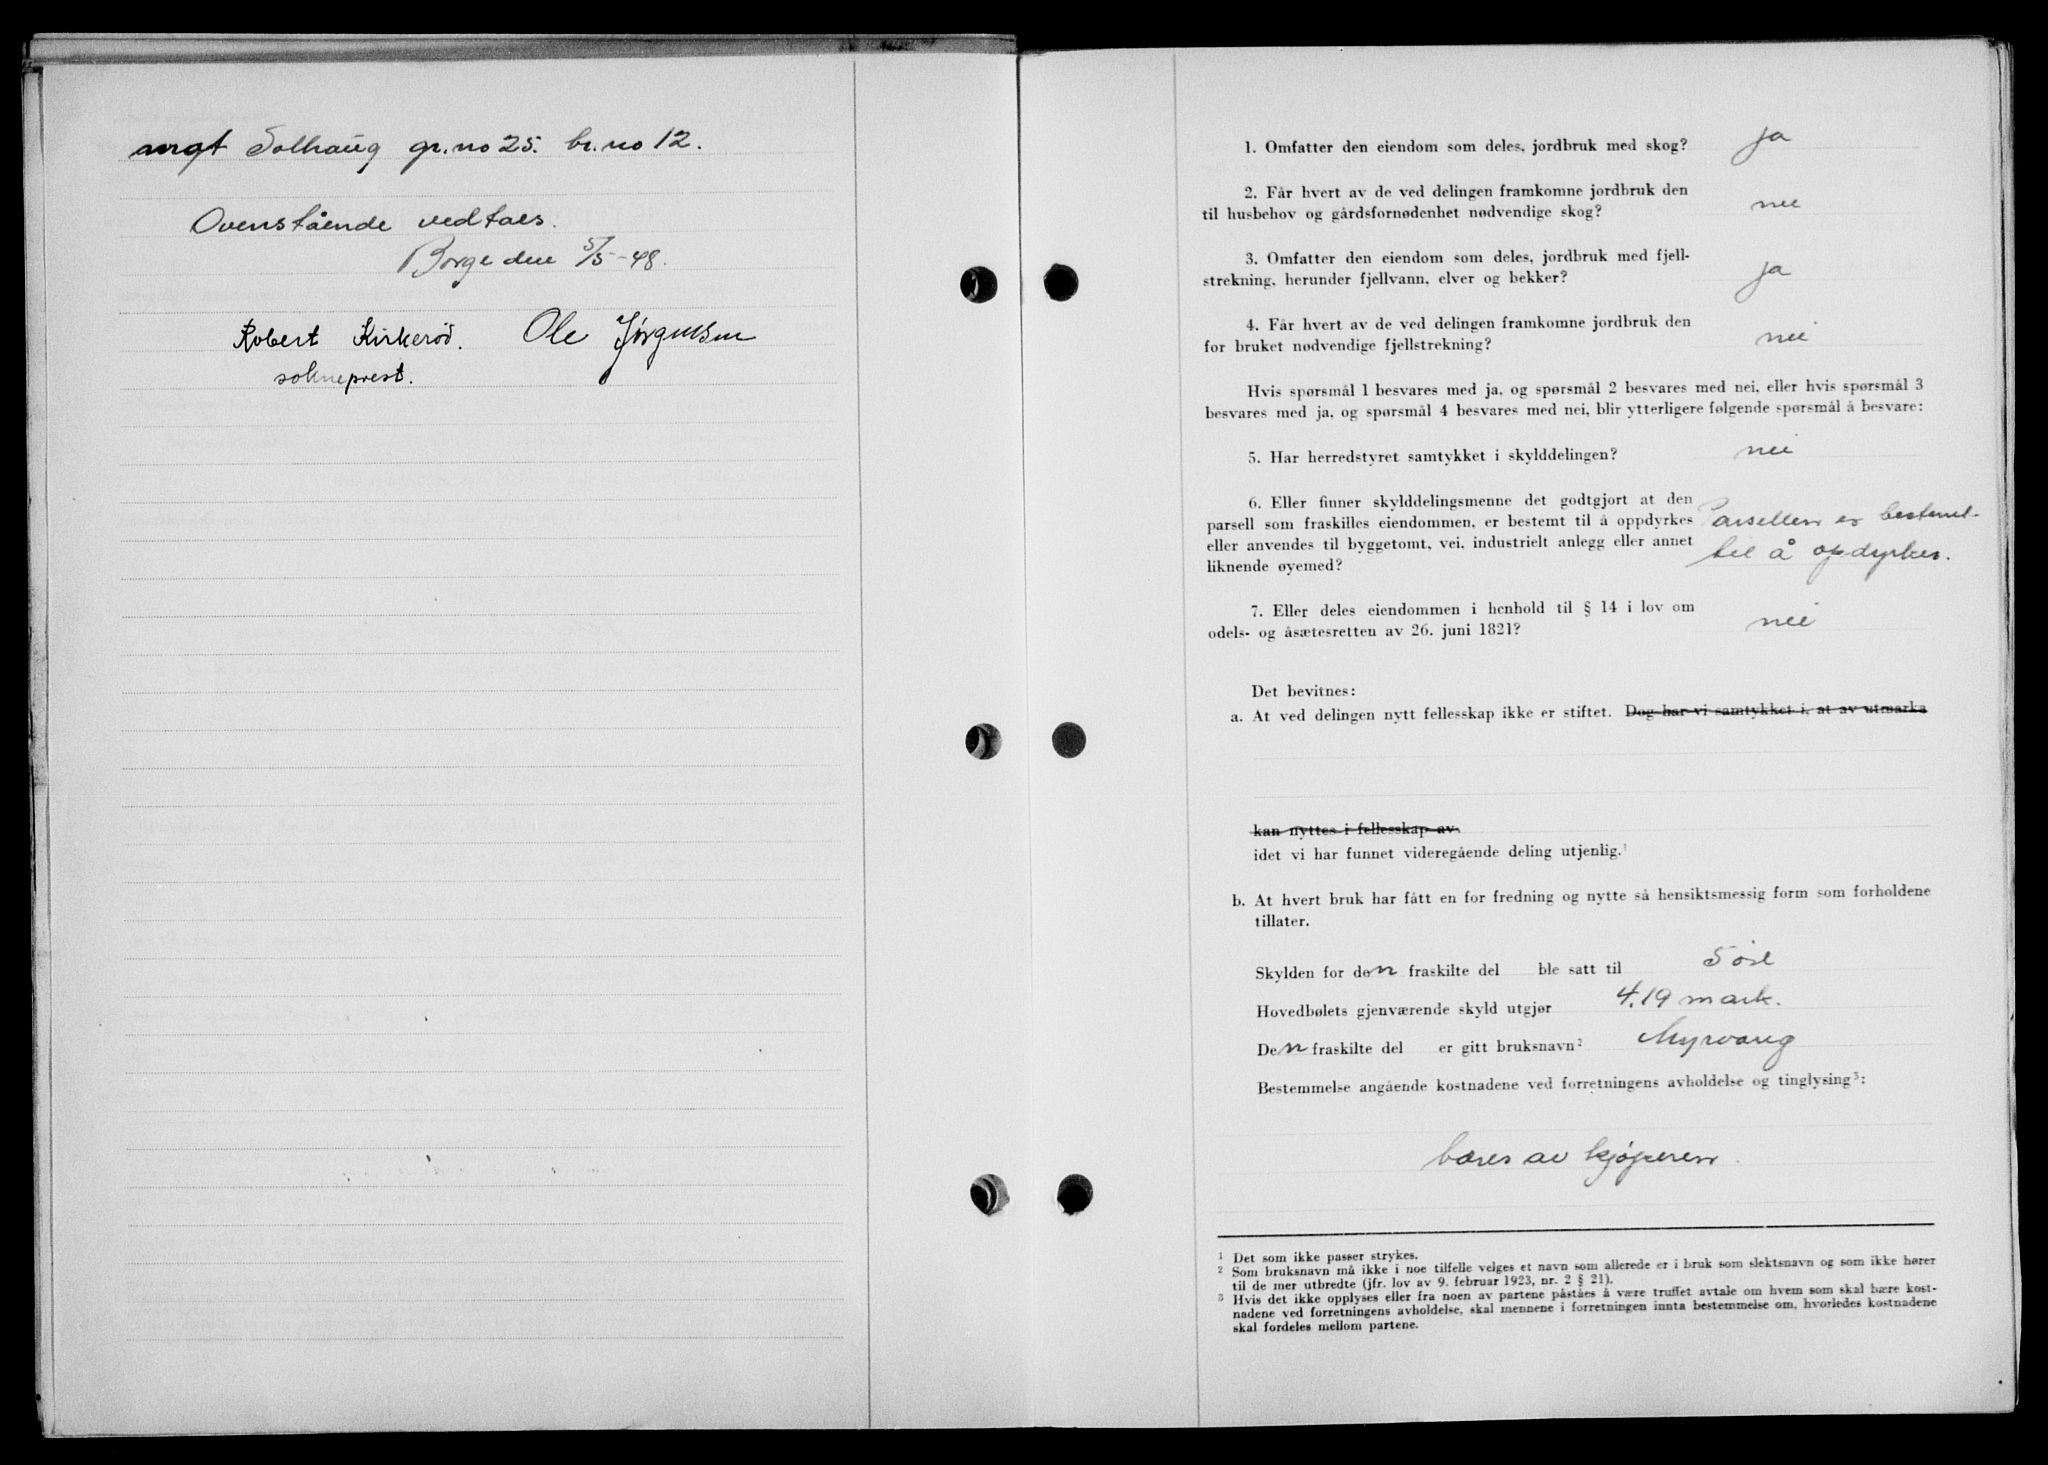 angt Solhaug gr. no 25. br. no 12.
Ovenstående vedtaes.
Borge den 5/5-48.
Robert Kirkerød. Ole Jørgensen
sokneprest.
1. Omfatter den eiendom som deles, jordbruk med skog? ja
2. Får hvert av de ved delingen framkomne jordbruk den
til husbehov og gårdsfornødenhet nødvendige skog? nei
3. Omfatter den eiendom som deles, jordbruk med fjell-
strekning, herunder fjellvann, elver og bekker? ja
4. Får hvert av de ved delingen framkomne jordbruk den
for bruket nødvendige fjellstrekning? nei
Hvis spørsmål 1 besvares med ja, og spørsmål 2 besvares med nei, eller hvis spørsmål 3
besvares med ja, og spørsmål 4 besvares med nei, blir ytterligere følgende spørsmål å besvare:
5. Har herredstyret samtykket i skylddelingen? nei
6. Eller finner skylddelingsmenne det godtgjort at den
parsell som fraskilles eiendommen, er bestemt til å oppdyrkes Parsellen er bestemt
eller anvendes til byggetomt, vei, industrielt anlegg eller annet til å opdyrkes.
liknende øyemed?
7. Eller deles eiendommen i henhold til § 14 i lov om
odels- og åsætesretten av 26. juni 1821? nei
Det bevitnes:
a. At ved delingen nytt fellesskap ikke er stiftet. Dog har vi samtykket i, at av utmarka
kan nyttes i fellesskap av
idet vi har funnet videregående deling utjenlig.¹
b. At hvert bruk har fått en for fredning og nytte så hensiktsmessig form som forholdene
tillater.
Skylden for den fraskilte del ble satt til 5 øre
Hovedbølets gjenværende skyld utgjør 4,19 mark.
Den fraskilte del er gitt bruksnavn² Myrvang
Bestemmelse angående kostnadene ved forretningens avholdelse og tinglysing³:
bæres av kjøperen.
¹ Det som ikke passer strykes.
² Som bruksnavn må ikke i noe tilfelle velges et navn som allerede er i bruk som slektsnavn og som ikke hører
til de mer utbredte (jfr. lov av 9. februar 1923, nr. 2 § 21).
³ Hvis det ikke opplyses eller fra noen av partene påståes å være truffet avtale om hvem som skal bære kost-
nadene ved forretningens avholdelse, skal mennene i forretningen innta bestemmelse om, hvorledes kostnadene
skal fordeles mellom partene.